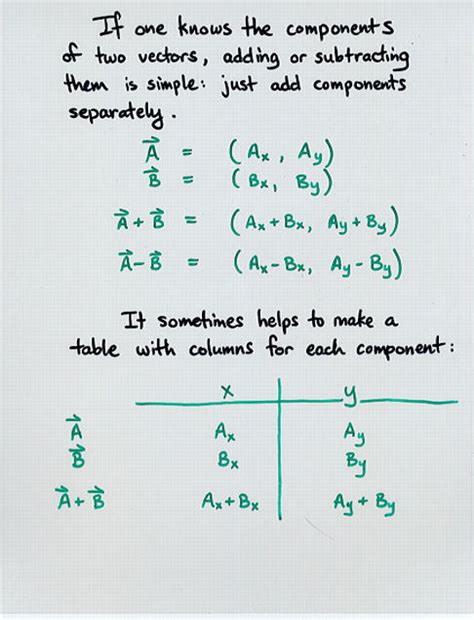 If one knows the components
of two vectors, adding or subtracting
them is simple: just add components
separately.
A⃗ = (Ax, Ay)
B⃗ = (Bx, By)
A⃗ + B⃗ = (Ax + Bx, Ay + By)
A⃗ - B⃗ = (Ax - Bx, Ay - By)
It sometimes helps to make a
table with columns for each component:
x y
A⃗ Ax Ay
B⃗ Bx By
A⃗ + B⃗ Ax + Bx Ay + By